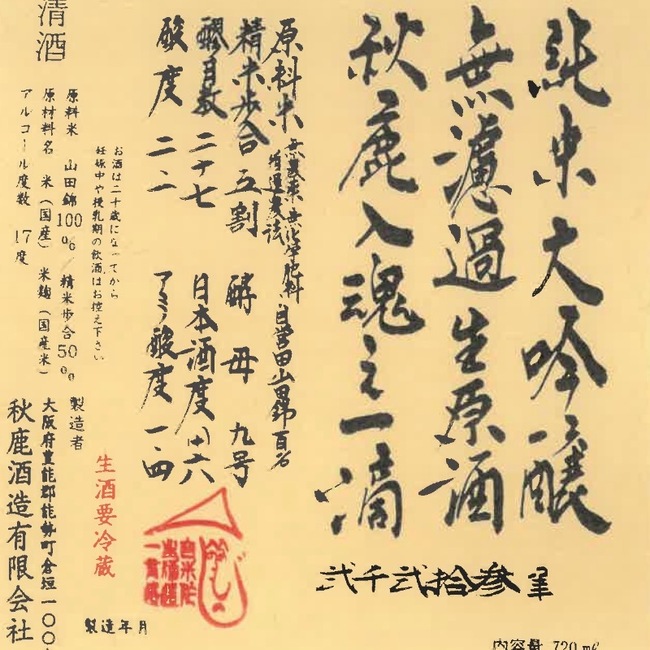 純米大吟醸
無濾過生原酒
秋鹿入魂之一滴
弐千弐拾参年
内容量 720ml
原料米 無農薬無化学肥料、自営田山田錦百%
循環農法
精米歩合 五割 酵母 九号
醪日数 二十七 日本酒度 廾六
酸度 二・二 アミノ酸度 一・四
お酒は二十歳になってから
妊娠中や授乳期の飲酒はお控え下さい
清酒
原料米 山田錦100% 精米歩合50%
原材料名 米(国産) 米麹(国産米)
アルコール度数 17度
生酒要冷蔵
製造者
大阪府豊能郡能勢町倉垣一〇〇
秋鹿酒造有限会社
製造年月